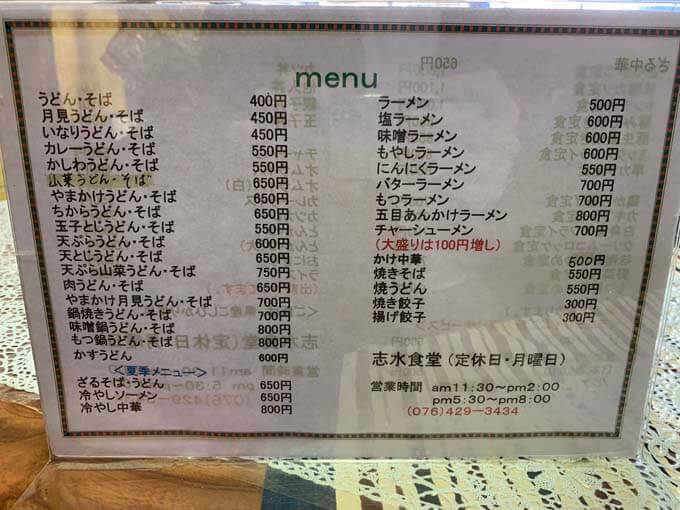 menu
うどん・そば 400円
月見うどん・そば 450円
いなりうどん・そば 450円
カレーうどん・そば 550円
かしわうどん・そば 550円
山菜うどん・そば 650円
やまかけうどん・そば 650円
ちからうどん・そば 650円
玉子とじうどん・そば 550円
天ぷらうどん・そば 600円
天とじうどん・そば 650円
天ぷら山菜うどん・そば 750円
肉うどん・そば 650円
やまかけ月見うどん・そば 700円
鍋焼きうどん・そば 700円
味噌鍋うどん・そば 800円
もつ鍋うどん・そば 800円
かすうどん 600円
＜夏季メニュー＞
ざるそば・うどん 650円
冷やしソーメン 650円
冷やし中華 800円
ラーメン 500円
塩ラーメン 600円
味噌ラーメン 600円
もやしラーメン 600円
にんにくラーメン 550円
バターラーメン 700円
もつラーメン 700円
五目あんかけラーメン 800円
チャーシューメン 700円
(大盛りは100円増し)
かけ中華 500円
焼きそば 550円
焼うどん 550円
焼き餃子 300円
揚げ餃子 300円
志水食堂 (定休日・月曜日)
営業時間 am11:30～pm2:00
pm5:30～pm8:00
(076)429－3434